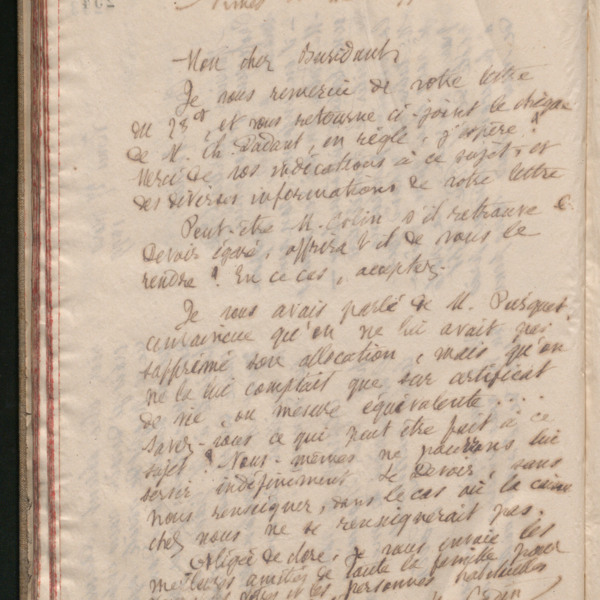 Mon cher Buridant,
Je vous remercie de votre lettre
du 28 ct, et vous retourne ci-joint le chèque
de M. Ch. Dadant, en règle, j'espère ?
Merci de vos indications à ce sujet, et
des diverses informations de votre lettre
Peut-être M. Colin s'il retrouve le
Devoir égaré, offrira-t-il de vous le
rendre ? En ce cas, acceptez.
Je vous avais parlé de M. Pusquet
convaincue qu'on ne lui avait pas
supprimé son allocation, mais qu'on
ne la lui comptait que sur certificat
de vie, ou mesure équivalente....
Savez-vous ce qui peut être fait à ce
sujet ? Nous-mêmes ne pouvons lui
servir indéfiniment le Devoir, sans
nous renseigner, dans le cas où la
chez nous ne se renseignerait pas.
Obligée de clore, je vous envoie les
meilleures amitiés de toute la famille pour
et les personnes habituelles